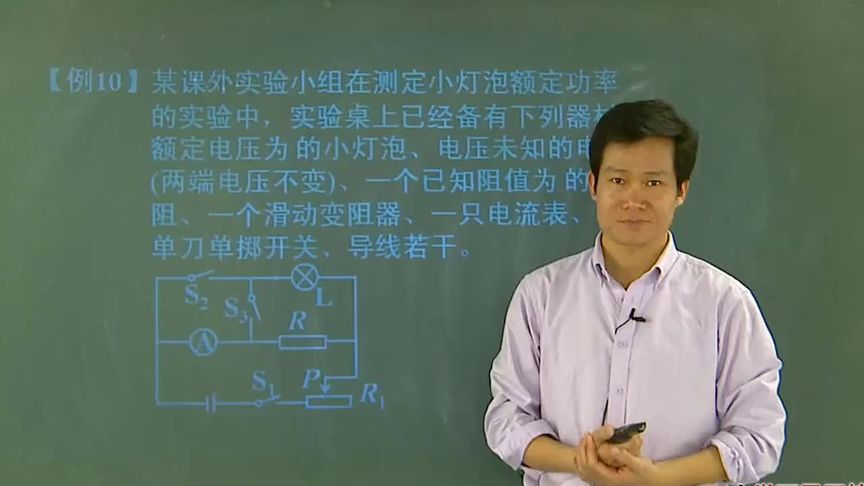 【例10】某课外实验小组在测定小灯泡额定功率
的实验中，实验桌上已经备有下列器
额定电压为 的小灯泡、电压未知的
(两端电压不变)、一个已知阻值为 的
阻、一个滑动变阻器、一只电流表、
单刀单掷开关、导线若干。
S2
L
S3
R
A
S1
P
R1